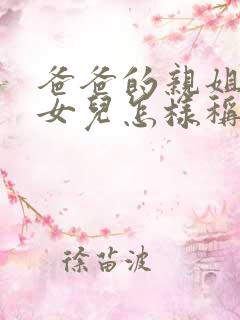 爸爸的親姐
女兒怎樣稱
徐苗波